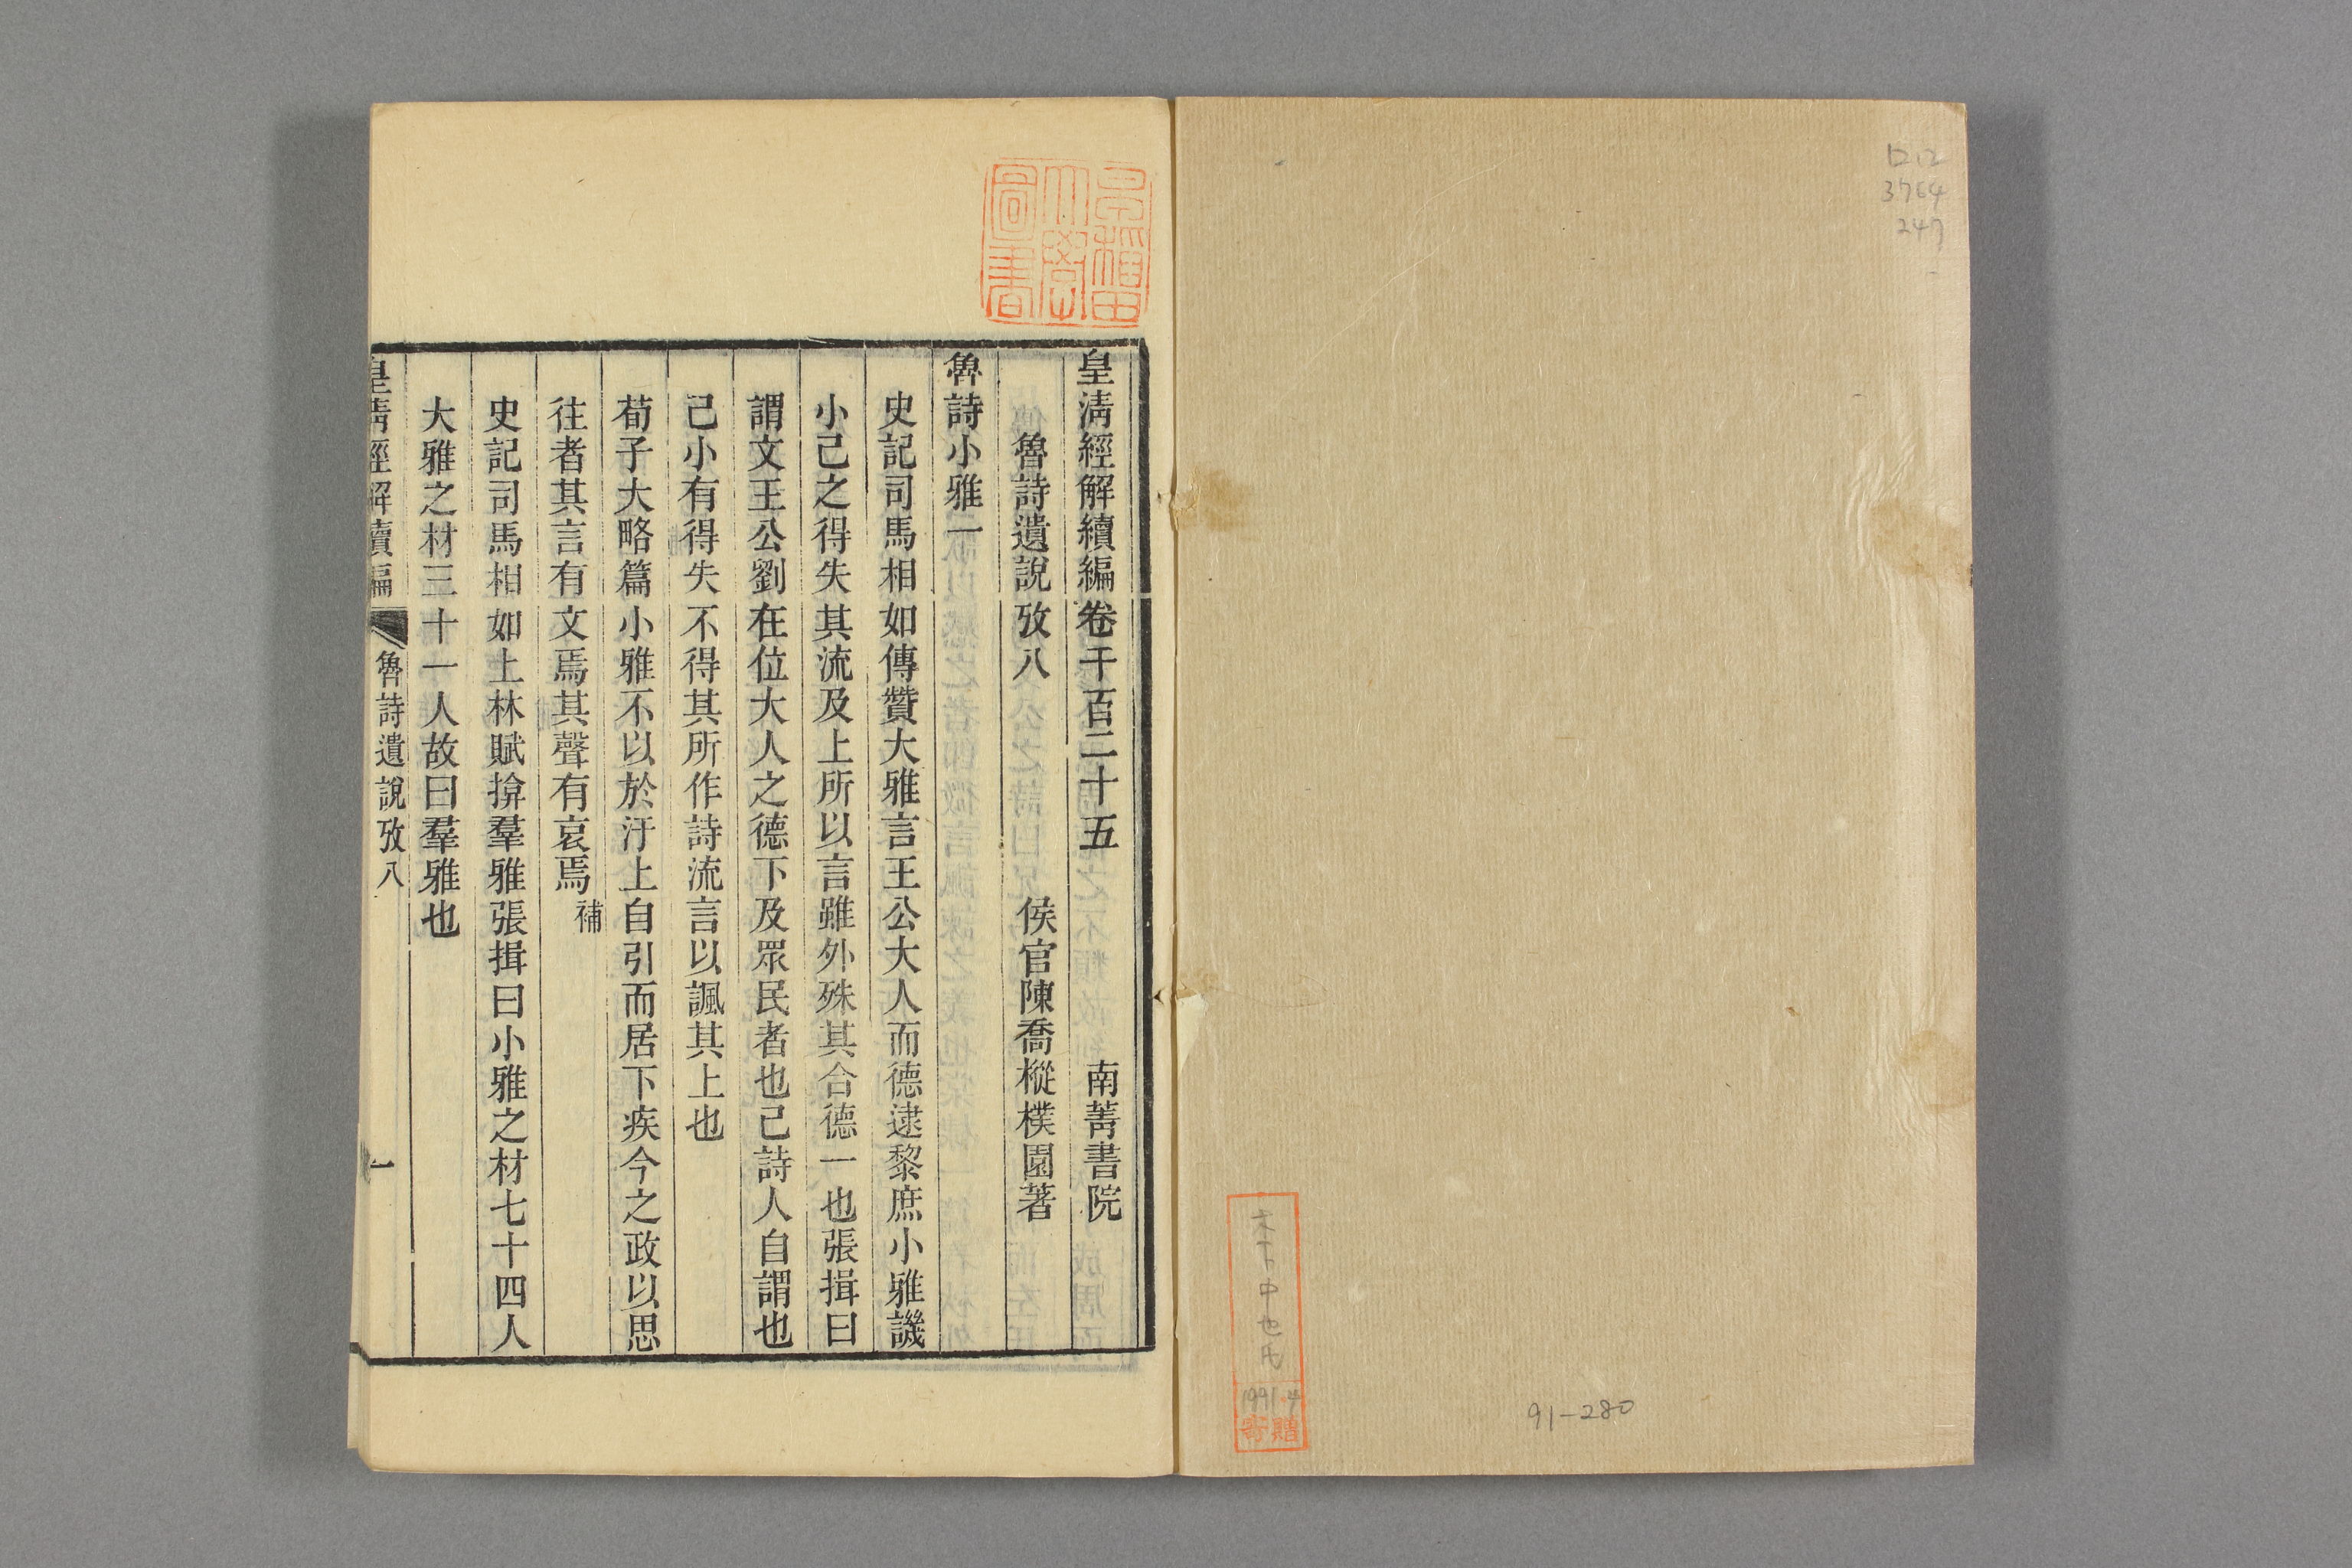 ロ12
3764
247
木下中也氏
1991.4
寄贈
91-280
早稲田
大學
圖書
皇清經解續編卷千百二十五　南菁書院
魯詩遺說攷八　侯官陳喬樅樸園著
魯詩小雅一
史記司馬相如傳贊大雅言王公大人而德逮黎庶小雅譏
小己之得失其流及上所以言雖外殊其合德一也張揖曰
謂文王公劉在位大人之德下及眾民者也己詩人自謂也
己小有得失不得其所作詩流言以諷其上也
荀子大略篇小雅不以於汙上自引而居下疾今之政以思
往者其言有文焉其聲有哀焉補
史記司馬相如上林賦揜羣雅張揖曰小雅之材七十四人
大雅之材三十一人故曰羣雅也
皇清經解續編　魯詩遺說攷八　一